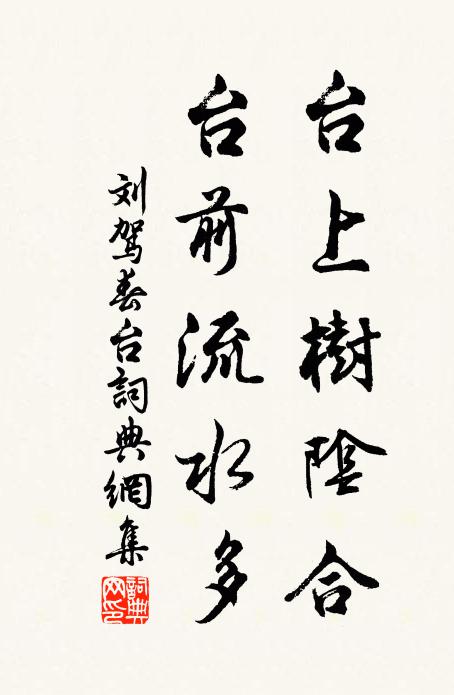 台上樹陰合
台前流水多
刘駕春台詞典網集
詞典网印